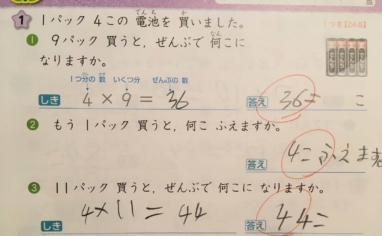 1 1パック 4この 電池を 買いました。
1 9パック 買うと、ぜんぶで 何こに
なりますか。
1つ分の数 いくつ分 ぜんぶの数
しき 4×9=36 答え 36こ こ
2 もう 1パック 買うと、何こ ふえますか。
答え 4こふえます
3 11パック 買うと、ぜんぶで 何こに なりますか。
しき 4×11=44 答え 44こ